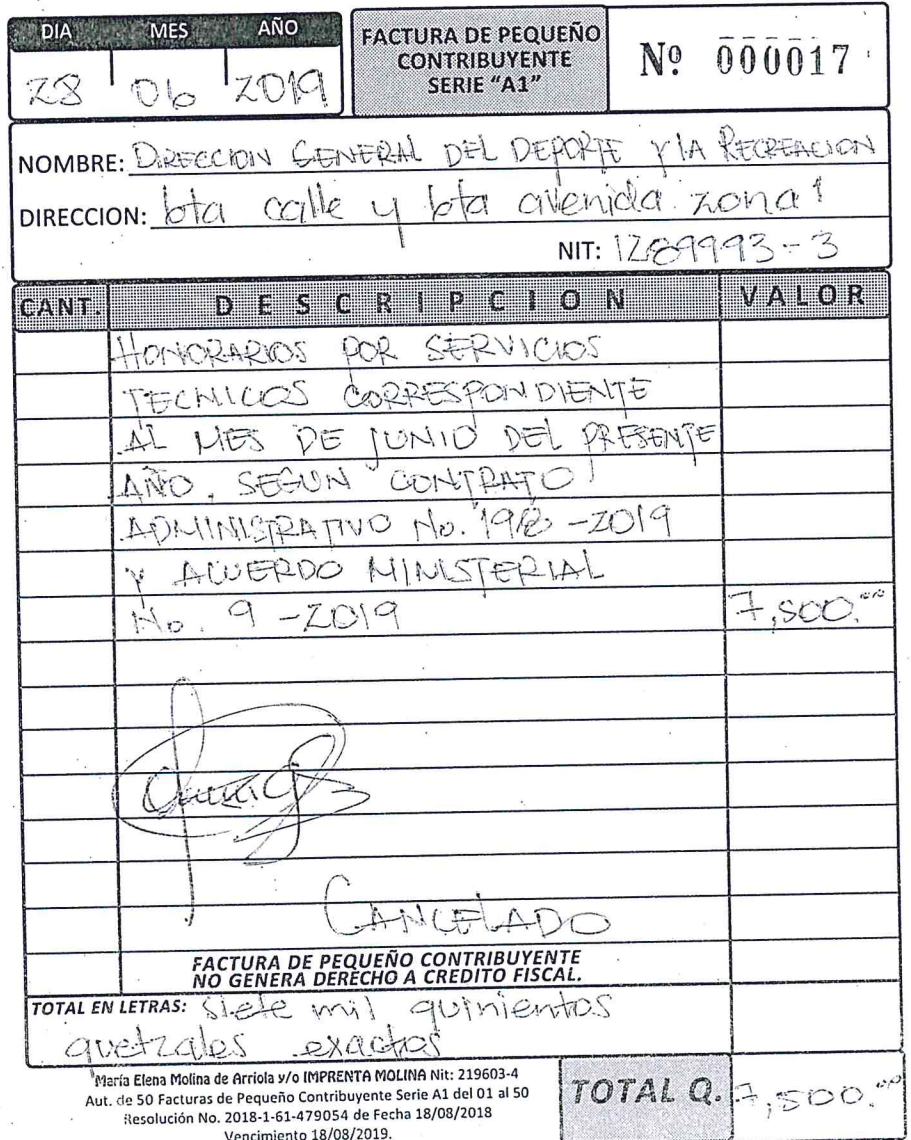 DIA MES AÑO
28 06 2019
FACTURA DE PEQUEÑO
CONTRIBUYENTE
SERIE "A1"
Nº 000017
NOMBRE: DIRECCION GENERAL DEL DEPORTE Y LA RECREACION
DIRECCION: 6ta calle y 6ta avenida zona 1
NIT: 1289993-3
CANT. DESCRIPCION VALOR
HONORARIOS POR SERVICIOS
TECNICOS CORRESPONDIENTE
AL MES DE JUNIO DEL PRESENTE
AÑO, SEGUN CONTRATO
ADMINISTRATIVO No. -2019
Y ACUERDO MINISTERIAL
No. 9-2019 7,500.00
CANCELADO
FACTURA DE PEQUEÑO CONTRIBUYENTE
NO GENERA DERECHO A CREDITO FISCAL.
TOTAL EN LETRAS: siete mil quinientos
quetzales exactos
María Elena Molina de Arriola y/o IMPRENTA MOLINA Nit: 219603-4
Aut. de 50 Facturas de Pequeño Contribuyente Serie A1 del 01 al 50
Resolución No. 2018-1-61-479054 de Fecha 18/08/2018
Vencimiento 18/08/2019.
TOTAL Q. 7,500.00